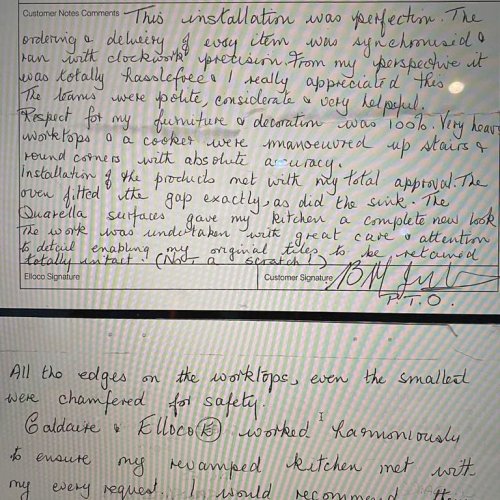 Customer Notes Comments This installation was perfection. The
ordering & delivery of every item was synchronised &
ran with clockwork precision. From my perspective it
was totally hasslefree & I really appreciated this
The teams were polite, considerate & very helpful.
Respect for my furniture & decoration was 100%. Very heavy
worktops & a cooker were manoeuvred up stairs &
round corners with absolute accuracy.
Installation of the products met with my total approval. The
oven fitted the gap exactly, as did the sink. The
Quarella surfaces gave my kitchen a complete new look
The work was undertaken with great care & attention
to detail enabling my original tiles to be retained
totally intact. (Not a scratch!)
Elloco Signature Customer Signature
P.T.O.
All the edges on the worktops, even the smallest
were chamfered for safety.
& Elloco worked harmoniously
to ensure my revamped kitchen met with
my every request. I would recommend